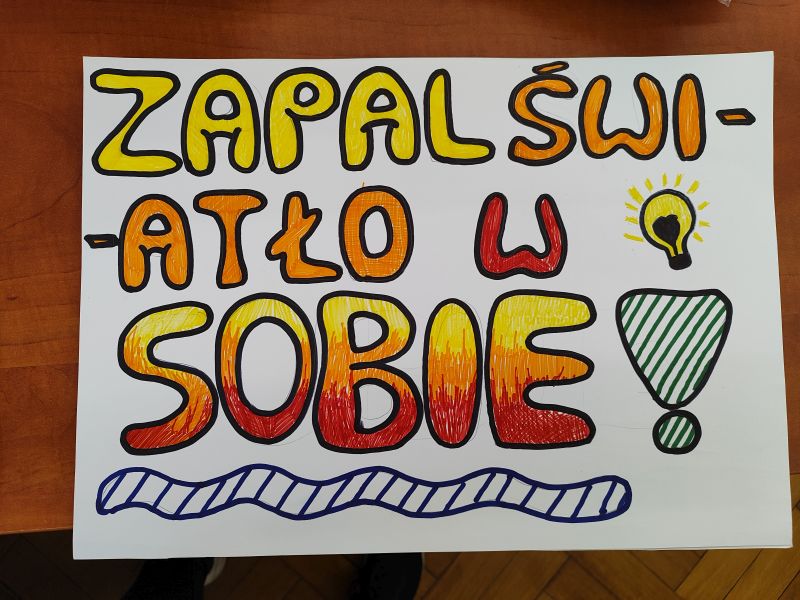 ZAPAL ŚWI-
-ATŁO W
SOBIE!